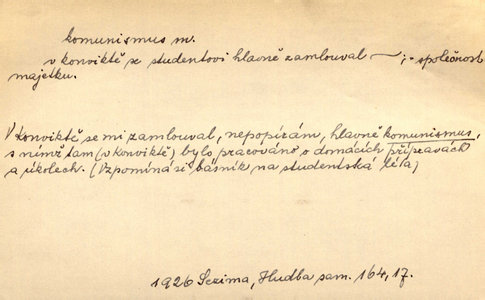 komunismus m.
v konviktě se studentovi hlavně zamlouval — ;- společnost
majetku.
V konviktě se mi zamlouval, nepopírám, hlavně komunismus,
s nímž tam (v konviktě) bylo pracováno o domácích přípravách
a úkolech. (Vzpomíná si básník na studentská léta)
1926 Sezima, Hudba sam. 164, 17.